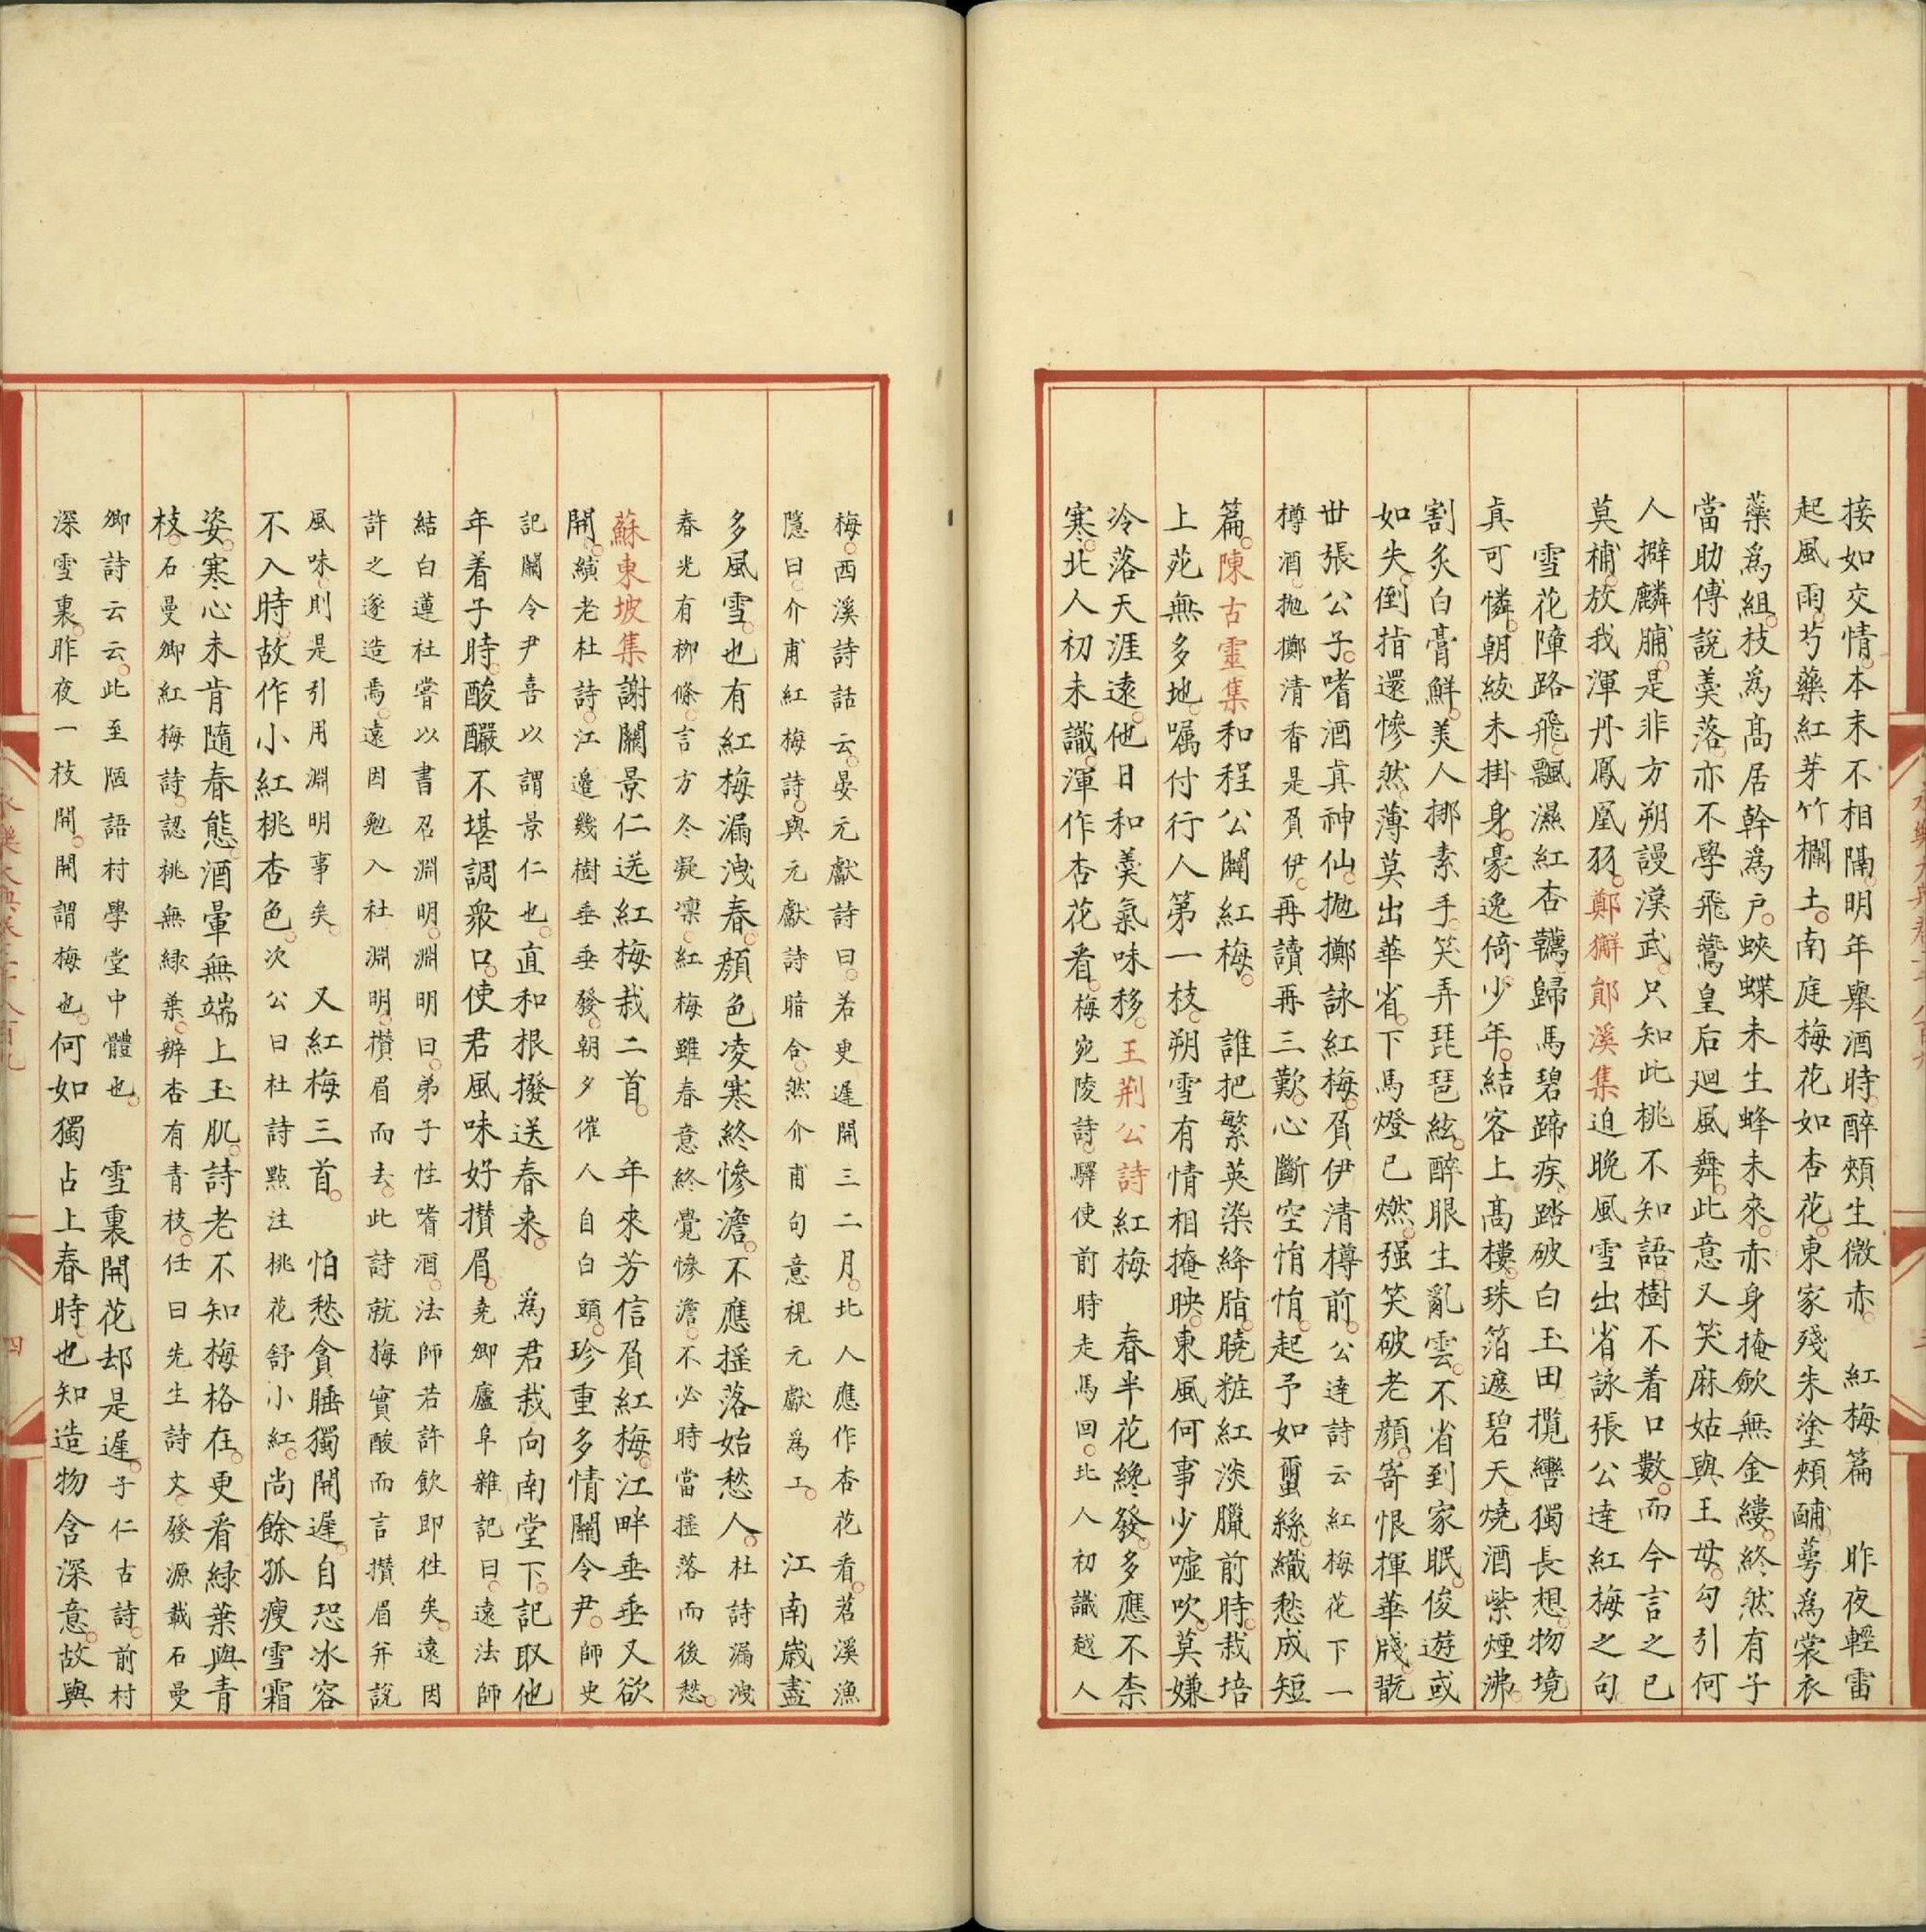 接如交情本末不相隔明年舉酒時醉頰生微赤　紅梅篇　昨夜輕雷
起風雨芍藥紅芽竹欄土南庭梅花如杏花東家殘朱塗頰酺萼為裳衣
藥為組枝為髙居幹為戶蛺蝶未生蜂未來赤身掩歛無金縷終然有子
當助傅說羮落亦不學飛鸞皇后廻風舞此意又笑麻姑與王母勾引何
人擗麟脯是非方朔謾漢武只知此桃不知語樹不着口數而今言之已
莫補放我渾丹鳳凰羽鄭獬鄖溪集迫晚風雪出省詠張公達紅梅之句
雪花障路飛飄濕紅杏韉歸馬碧蹄疾踏破白玉田攬轡獨長想物境
真可憐朝紱未掛身豪逸倚少年結客上髙樓珠箔邃碧天燒酒紫煙沸
割炙白膏鮮美人挪素手笑弄琵琶絃醉眼生亂雲不省到家眠俊遊或
如失倒指還慘然薄莫出華省下馬燈已燃强笑破老顏寄恨揮華牋翫
世張公子嗜酒真神仙抛擲詠紅梅負伊清樽前公達詩云紅梅花下一
樽酒抛擲清香是負伊再讀再三歎心斷空悁悁起予如蠒絲織愁成短
篇陳古靈集和程公闢紅梅　誰把繁英染絳脂曉粧紅淡臘前時栽培
上苑無多地嘱付行人第一枝朔雪有情相掩映東風何事少嘘吹莫嫌
冷落天涯遠他日和羮氣味移王荆公詩紅梅　春半花纔發多應不柰
寒北人初未識渾作杏花看梅宛陵詩驛使前時走馬回北人初識越人
梅西溪詩話云晏元獻詩曰若更遲開三二月北人應作杏花看苕溪漁
隱曰介甫紅梅詩與元獻詩暗合然介甫句意視元獻為工　江南歲盡
多風雪也有紅梅漏洩春顏色凌寒終慘澹不應摇落始愁人杜詩漏洩
春光有柳條言方冬凝凛紅梅雖春意終覺慘澹不必時當摇落而後愁
蘇東坡集謝關景仁送紅梅栽二首　年來芳信負紅梅江畔垂垂又欲
開縯老杜詩江邉幾樹垂垂發朝夕催人自白頭珍重多情關令尹師史
記關令尹喜以謂景仁也直和根撥送春来　為君栽向南堂下記取他
年着子時酸釅不堪調衆口使君風味好攅眉堯卿廬阜雜記曰遠法師
結白蓮社嘗以書召淵明淵明曰弟子性嗜酒法師若許飲即徃矣遠因
許之遂造焉遠因勉入社淵明攅眉而去此詩就梅實酸而言攅眉并說
風味則是引用淵明事矣　又紅梅三首　怕愁貪睡獨開遲自恐冰容
不入時故作小紅桃杏色次公曰杜詩點注桃花舒小紅尚餘孤瘦雪霜
姿寒心未肯隨春態酒暈無端上玉肌詩老不知梅格在更看緑葉與青
枝石曼卿紅梅詩認桃無緑葉辨杏有青枝任曰先生詩文發源載石曼
卿詩云云此至陋語村學堂中體也　雪裏開花却是遲子仁古詩前村
深雪裏昨夜一枝開開謂梅也何如獨占上春時也知造物含深意故與